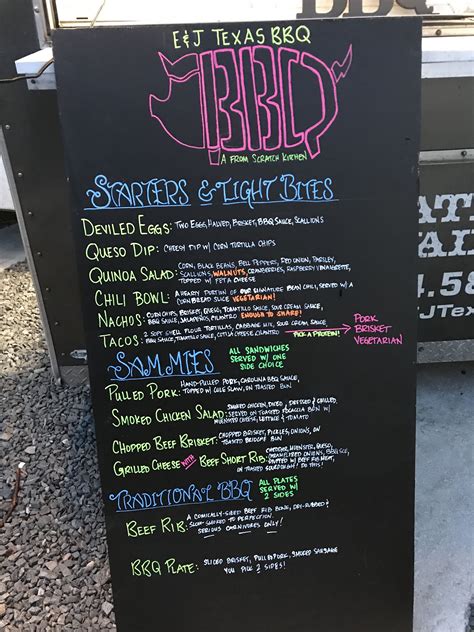 BBQ
E&J TEXAS BBQ
BBQ
A FROM SCRATCH KITCHEN
STARTERS & LIGHT BITES
DEVILED EGGS: TWO EGGS, HALVED, BRISKET, BBQ SAUCE, SCALLIONS
QUESO DIP: CHEESY DIP W/ CORN TORTILLA CHIPS
QUINOA SALAD: CORN, BLACK BEANS, BELL PEPPERS, RED ONION, PARSLEY,
SCALLIONS, WALNUTS, CRANBERRIES, RASPBERRY VINAIGRETTE,
TOPPED W/ FETA CHEESE
CHILI BOWL: A HEARTY PORTION OF OUR SIGNATURE BEAN CHILI, SERVED W/ A
CORNBREAD SLICE VEGETARIAN!
NACHOS: CORN CHIPS, BRISKET, QUESO, TOMATILLO SAUCE, SOUR CREAM SAUCE,
BBQ SAUCE, JALAPEÑOS, CILANTRO ENOUGH TO SHARE!
TACOS: 2 SOFT SHELL FLOUR TORTILLAS, CABBAGE MIX, SOUR CREAM, SAUCE,
BBQ SAUCE, TOMATILLO SAUCE, COTIJA CHEESE, CILANTRO PICK A PROTEIN!
PORK
BRISKET
VEGETARIAN
SAMMIES
ALL SANDWICHES
SERVED W/ ONE
SIDE CHOICE
PULLED PORK: HAND-PULLED PORK, CAROLINA BBQ SAUCE,
TOPPED W/ COLE SLAW, ON TOASTED BUN
SMOKED CHICKEN SALAD: SMOKED CHICKEN, DICED, DRESSED & CHILLED,
SERVED ON TOASTED FOCACCIA BUN W/
MUENSTER CHEESE, LETTUCE & TOMATO
CHOPPED BEEF BRISKET: CHOPPED BRISKET, PICKLES, ONIONS, ON
TOASTED BRIOCHE BUN
GRILLED CHEESE WITH BEEF SHORT RIB: CHEDDAR, MUENSTER, QUESO,
ONIONS, BBQ SCE,
W/ BEEF RIB MEAT,
ON TOASTED SOURDOUGH! DO THIS!
TRADITIONAL BBQ
ALL PLATES
SERVED W/
2 SIDES
BEEF RIB: A COMICALLY-SIZED BEEF RIB BONE, DRY-RUBBED &
SLOW-SMOKED TO PERFECTION.
SERIOUS CARNIVORES ONLY!
BBQ PLATE: SLICED BRISKET, PULLED PORK, SMOKED SAUSAGE
YOU PICK 2 SIDES!